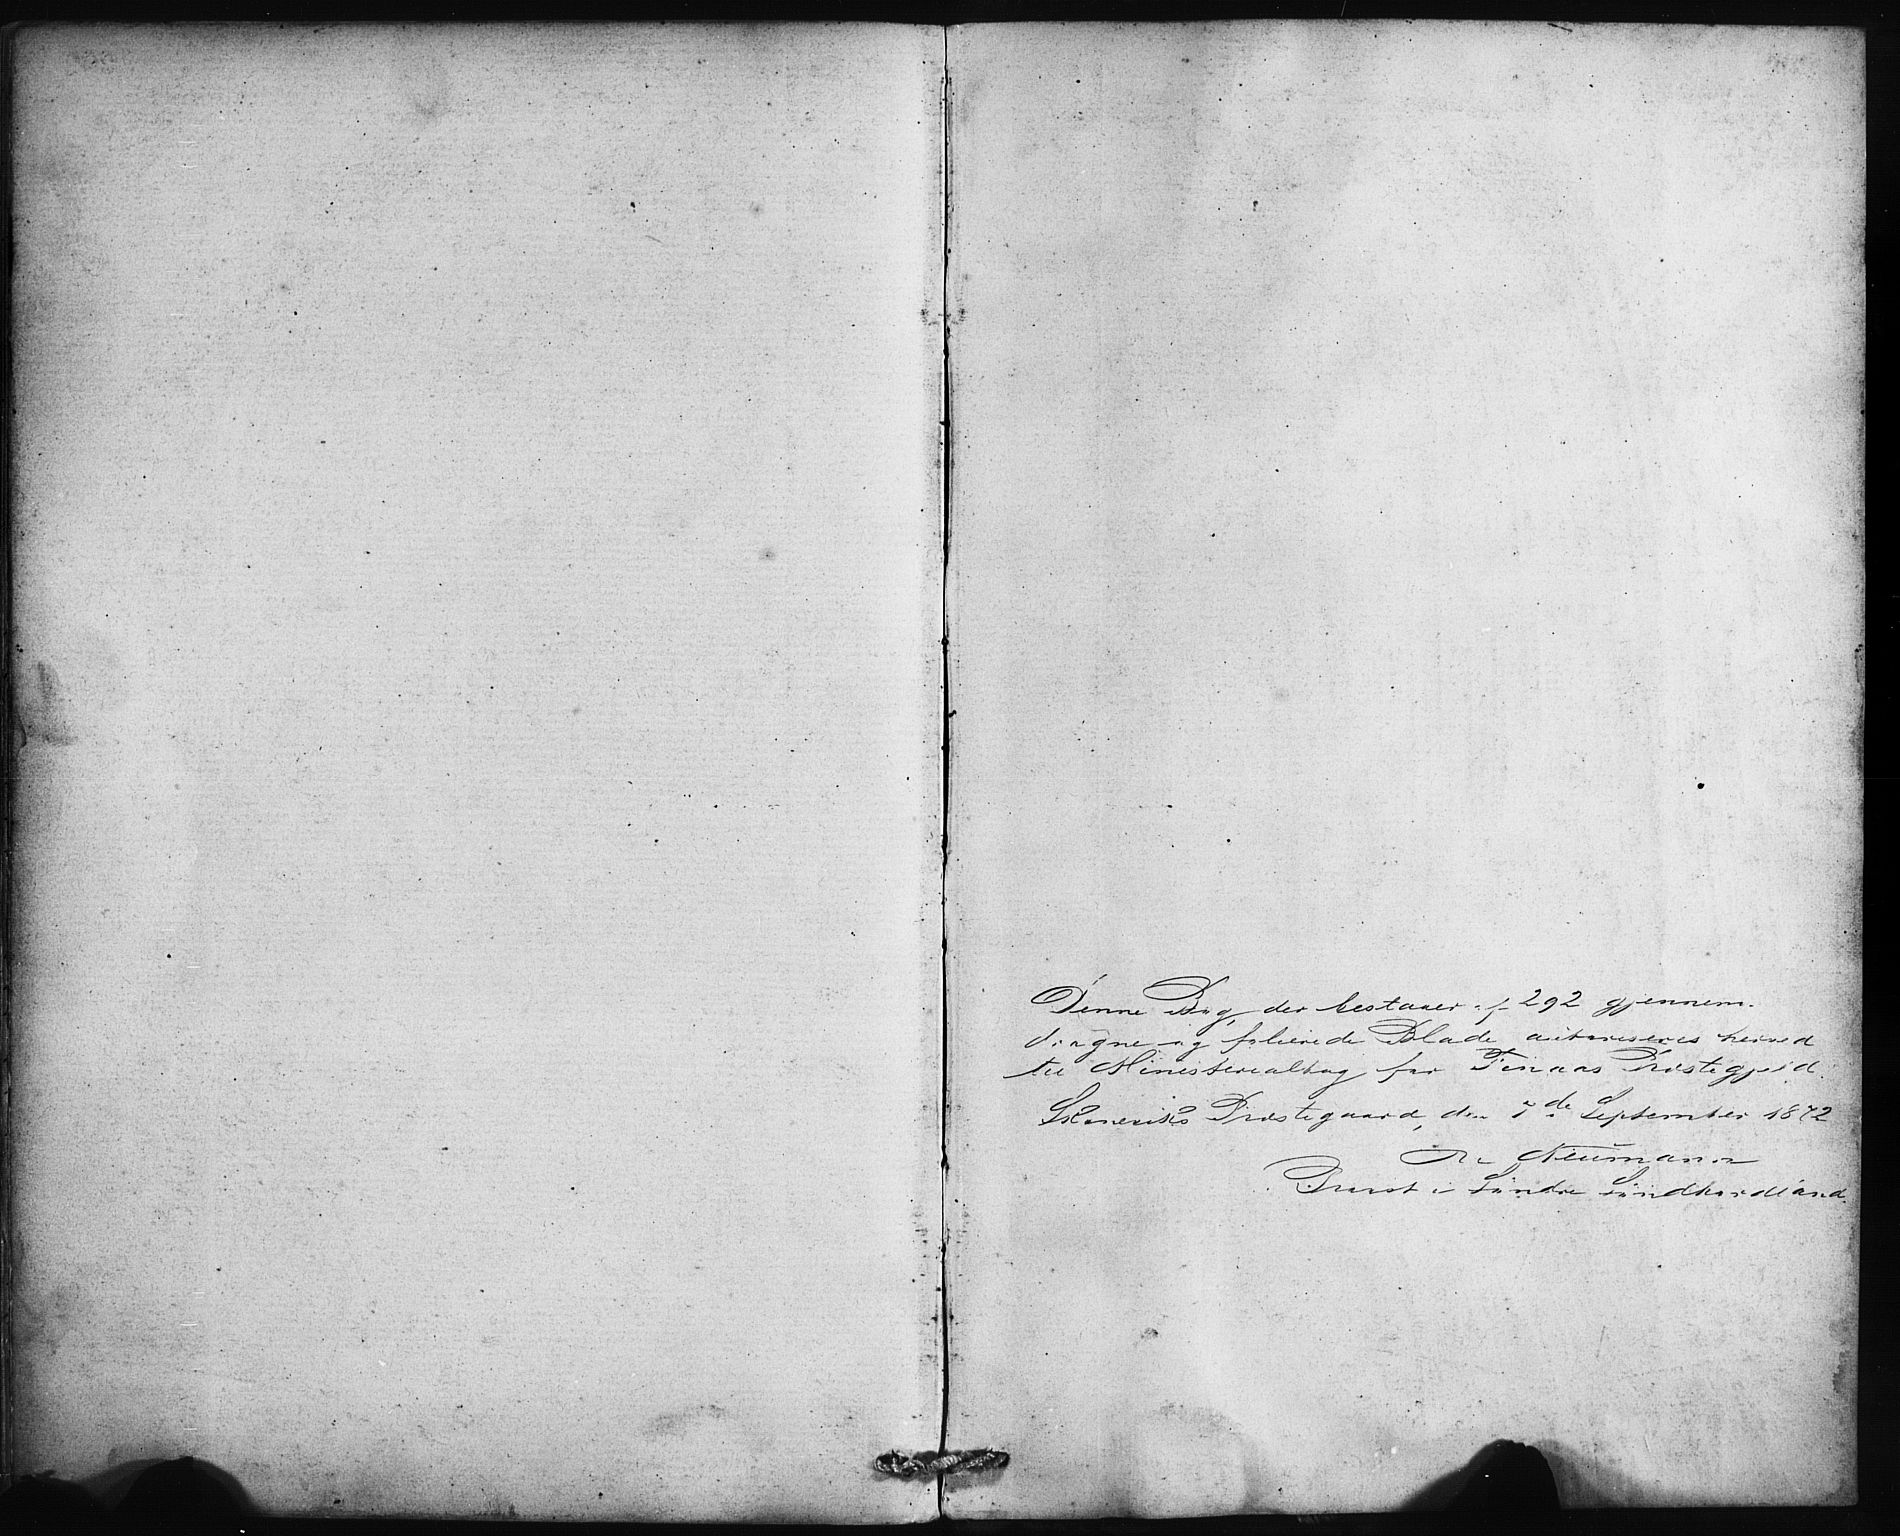 Denne Bog, der bestaaer af 292 gjennem-
dragne og folierede Blade autoriseres herved
til Ministerialbog for Finaas Præstegjeld.
Skoneviks Præstegaard, den 7de September 1872
Neumann
Provst i Søndre Søndhordland.